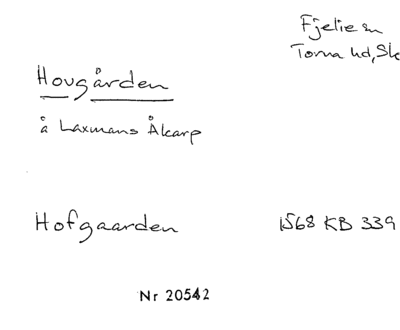 Fjelie sn
Torna hd, Sk
Hovgården
å Laxmans Åkarp
Hofgaarden 1568 KB 339
Nr 20542